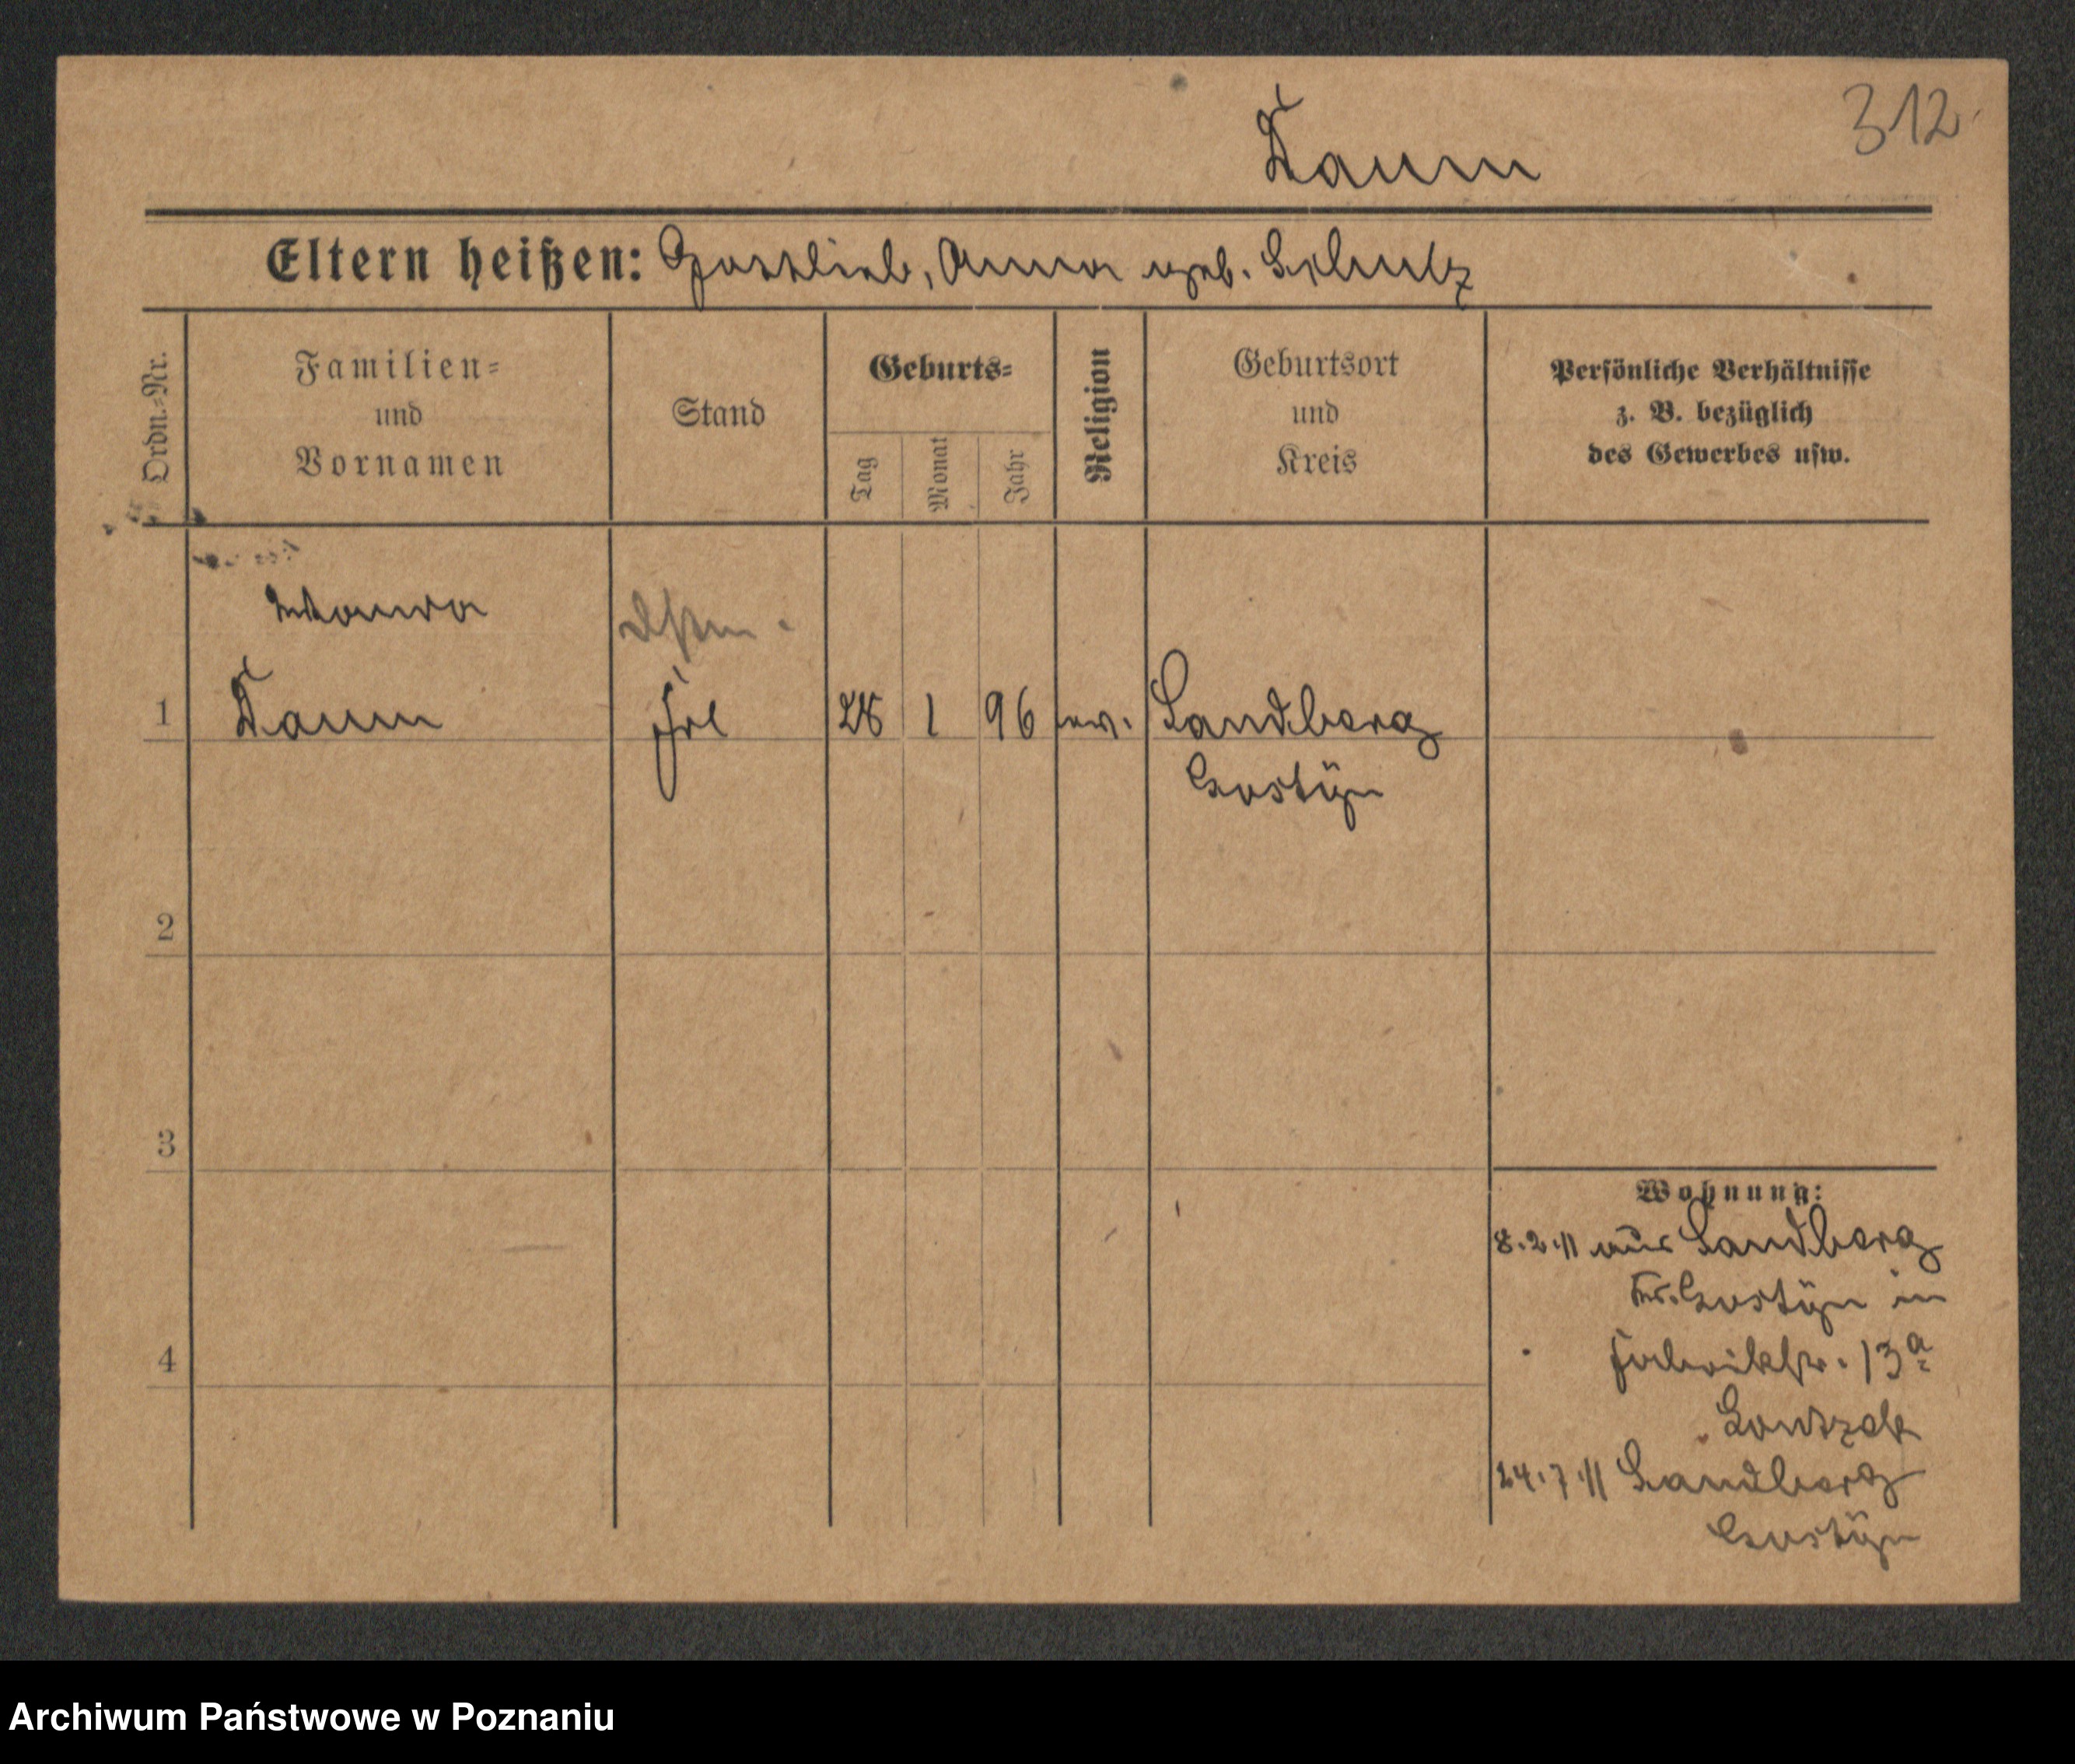 312
Daum
Eltern heißen: Gottlieb, Anna geb. Schulz
Ordn.=Nr.
Familien=
und
Vornamen
Stand
Geburts=
Tag
Monat
Jahr
Religion
Geburtsort
und
Kreis
Persönliche Verhältnisse
z. B. bezüglich
des Gewerbes usw.
1 Daum Frl 1 96 ev. Sandberg
Gostÿn
2
3
4
Wohnung:
8.2.11 aus Sandberg
Kr. Gostÿn in
Fabrikstr. 13a
24.7.11 Sandberg
Gostÿn
Archiwum Państwowe w Poznaniu